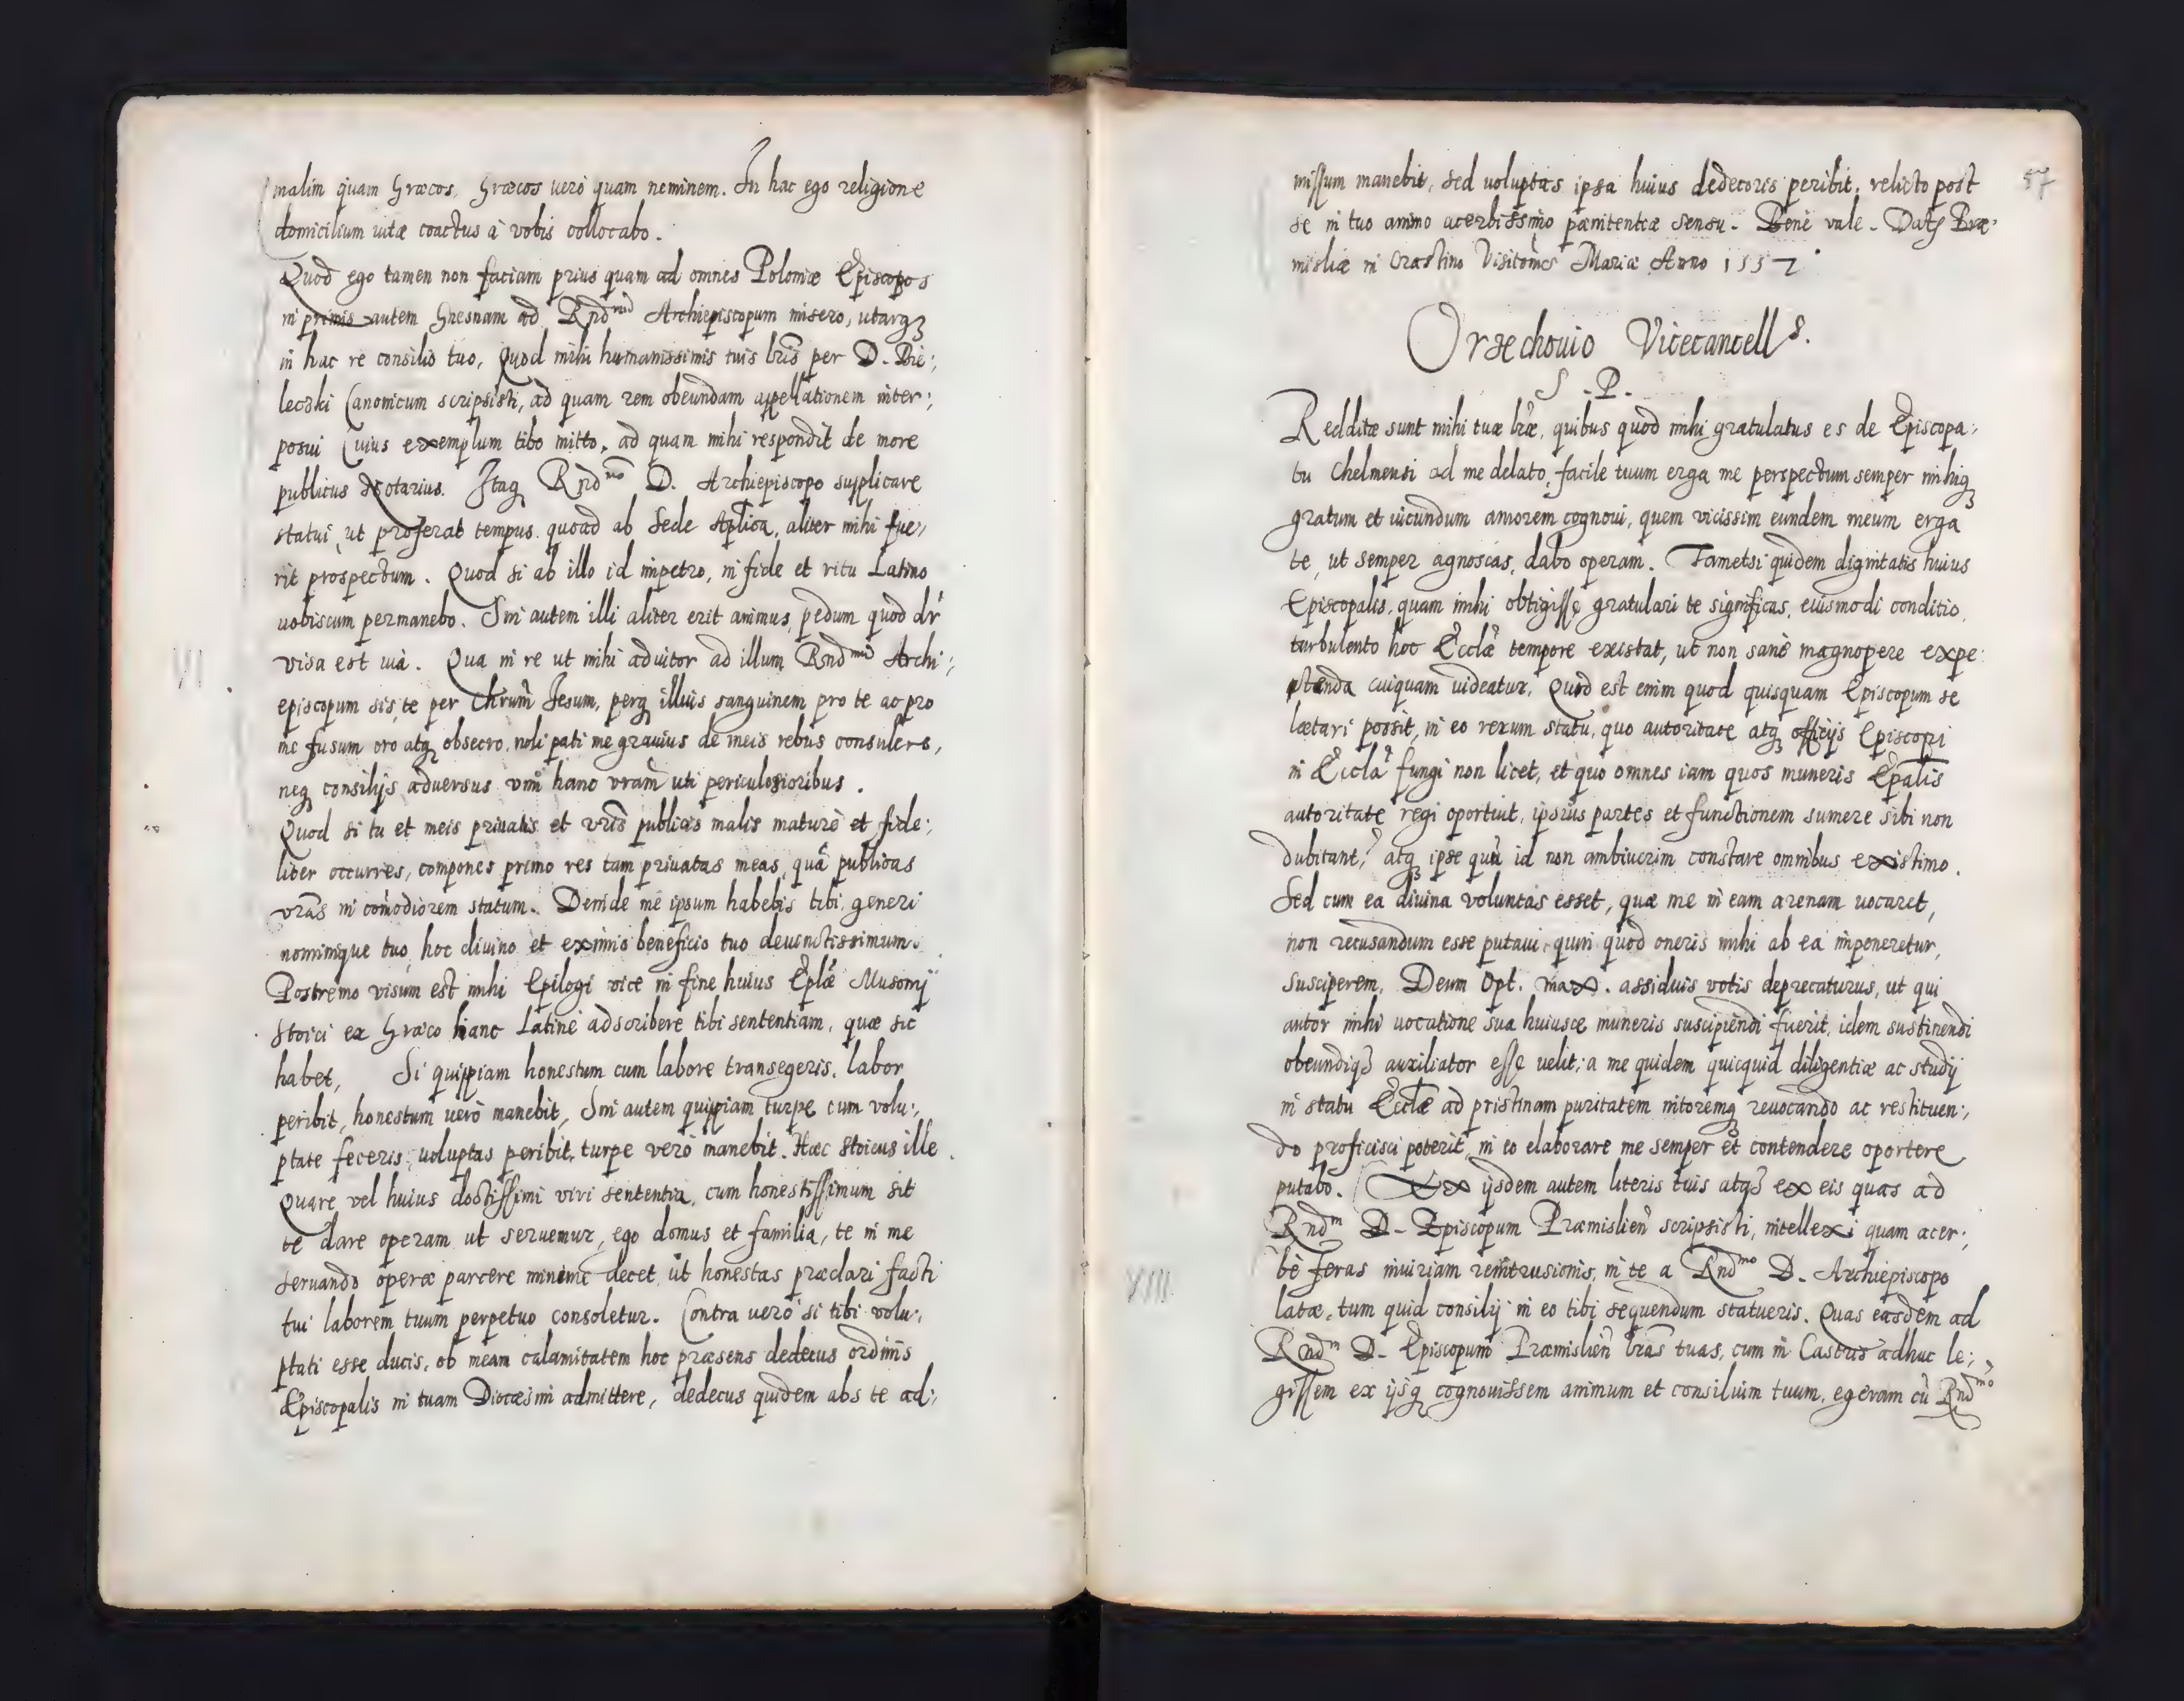 malim quam Græcos, Græcos uerò quam neminem. In hac ego religione
domicilium uitæ coactus à vobis collocabo.
Quod ego tamen non faciam prius quam ad omnes Poloniæ Episcopos
in primis autem Gnesnam ad Rndmum Archiepiscopum misero, utarq3
in hac re consilio tuo, Quod mihi humanissimis tuis lris per D. Bie:,
leczki Canonicum scripsisti, ad quam rem obeundam appellationem inter:,
posui Cuius exemplum tibo mitto, ad quam mihi respondit de more
publicus Notarius. Itaq Rndmo D. Archiepiscopo supplicare
statui, ut proferat tempus quoad ab Sede Aplica, aliter mihi fue:,
rit prospectum. Quod si ab illo id impetro, in fide et ritu Latino
uobiscum permanebo. Sin autem illi aliter erit animus, pedum quod dr
visa est uià. Qua in re ut mihi adiutor ad illum Rndmum Archi:,
episcopum sis, te per Chrum Jesum, perq illius sanguinem pro te ac pro
me fusum oro atq obsecro, noli pati me grauius de meis rebus consulere,
neq consilijs aduersus vim hanc vram uti periculosioribus.
Quod si tu et meis priuatis et vris publicis malis maturè et fide:,
liter occurres, compones primo res tam priuatas meas, quã publicas
vras in comodiorem statum. Deinde me ipsum habebis tibi, generi
nominique tuo, hoc diuino et eximio beneficio tuo deuinctissimum.
Postremo visum est mihi Epilogi vice in fine huius Eplæ Musonij
Stoici ex Græco hanc Latinè adscribere tibi sententiam, quæ sic
habet, Si quippiam honestum cum labore transegeris, labor
peribit, honestum uerò manebit, Sin autem quippiam turpe cum volu:,
ptate feceris, uoluptas peribit, turpe verò manebit. Hæc Stoicus ille.
Quare vel huius doctissimi viri sententia, cum honestissimum sit
te dare operam ut seruemur, ego domus et familia, te in me
seruando operæ parcere minimè decet, ut honestas præclari facti
tui laborem tuum perpetuo consoletur. Contra uerò si tibi volu:,
ptati esse ducis, ob meam calamitatem hoc præsens dedecus ordinis
Episcopalis in tuam Diocæsim admittere, dedecus quidem abs te ad:,
VI
57
missum manebit, sed uoluptas ipsa huius dedecoris peribit, relicto post
se in tuo animo acerbissimo pænitentiæ sensu. Bene vale. Dat Præ:
misliæ in Crastino Visitomis Mariæ Anno 1557.
Orzechouio Vicecancells.
S.P.
Redditæ sunt mihi tuæ lræ, quibus quod mihi gratulatus es de Episcopa:,
tu Chelmensi ad me delato, facile tuum erga me perspectum semper mihiq3
gratum et iucundum amorem cognoui, quem vicissim eundem meum erga
te, ut semper agnoscas, dabo operam. Tametsi quidem dignitatis huius
Episcopalis, quam mihi obtigisse gratulari te significas, eiusmodi conditio,
turbulento hoc Ecclæ tempore existat, ut non sanè magnopere expe:
tenda cuiquam uideatur. Quid est enim quod quisquam Episcopum se
lætari possit, in eo rerum statu, quo autoritate atq officijs Episcopi
in Eccla fungi non licet, et quo omnes iam quos muneris Epalis
autoritate regi oportuit, ipsius partes et functionem sumere sibi non
dubitant? atq ipse quin id non ambiuerim constare omnibus existimo.
Sed cum ea diuina voluntas esset, quæ me in eam arenam uocaret,
non recusandum esse putaui, quin quod oneris mihi ab ea imponeretur,
susciperem, Deum Opt. max. assiduis votis deprecaturus, ut qui
autor mihi uocatione sua huiusce muneris suscipiendi fuerit, idem sustinendi
obeundiq3 auxiliator esse uelit; a me quidem quicquid diligentiæ ac studij
in statu Ecclæ ad pristinam puritatem nitoremq reuocando ac restituen:,
do proficisci poterit, in eo elaborare me semper et contendere oportere
putabo. Ex ijsdem autem literis tuis atq3 ex eis quas ad
Rndm D. Episcopum Præmislien scripsisti, intellexi quam acer:,
bè feras iniuriam remtrusionis, in te a Rndmo D. Archiepiscopo
latæ, tum quid consilij in eo tibi sequendum statueris. Quas easdem ad
Rndm D. Episcopum Præmislien lras tuas, cum in Castris adhuc le:,
gissem ex ijsq cognouissem animum et consilium tuum, egeram cũ Rndmo
XIII